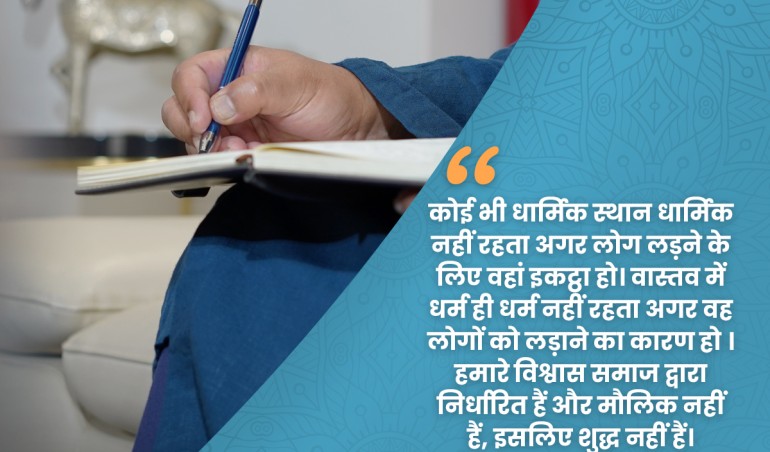 “
कोई भी धार्मिक स्थान धार्मिक
नहीं रहता अगर लोग लड़ने के
लिए वहां इकट्ठा हो। वास्तव में
धर्म ही धर्म नहीं रहता अगर वह
लोगों को लड़ाने का कारण हो ।
हमारे विश्वास समाज द्वारा
निर्धारित हैं और मौलिक नहीं
हैं, इसलिए शुद्ध नहीं हैं।